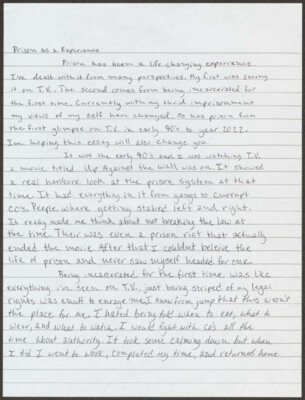 Prison as a Experience
Prison has been a life changing experience.
I've dealt with it from many perspectives. My first was seeing
it on T.V. The second comes from being incarcerated for
the first time. Currently with my third imprisonment
my views of my self have changed. So has prison from
the first glimpse on T.V in early 90's to year 2022.
Im hoping this essay will also change you.
It was the early 90's and I was watching T.V
a movie titled Up Against the Wall was on. It showed
a real hardcore look at the prison system at that
time. It had everything in it from gangs to currupt
CO's. People where getting stabed left and right.
It really made me think about not breaking the law at
the time. Their was even a prison riot that actually
ended the movie. After that I couldnt beleive the
life of prison and never saw myself headed for one.
Being incarcerated for the first time was like
everything i've seen on T.V., just being striped of my legal
rights was enuff to enrage me. I knew from jump that this wasn't
the place for me. I hated being told when to eat, what to
wear, and what to watch. I would fight with CO's all the
time about authority. It took some calming down but when
I did I went to work, completed my time, and returned home.